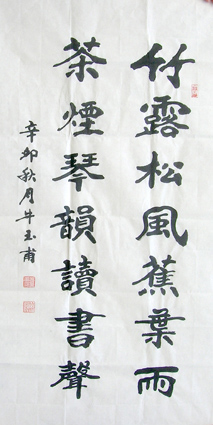 竹露松風蕉葉雨
茶煙琴韻讀書聲
辛卯秋月牛玉甫